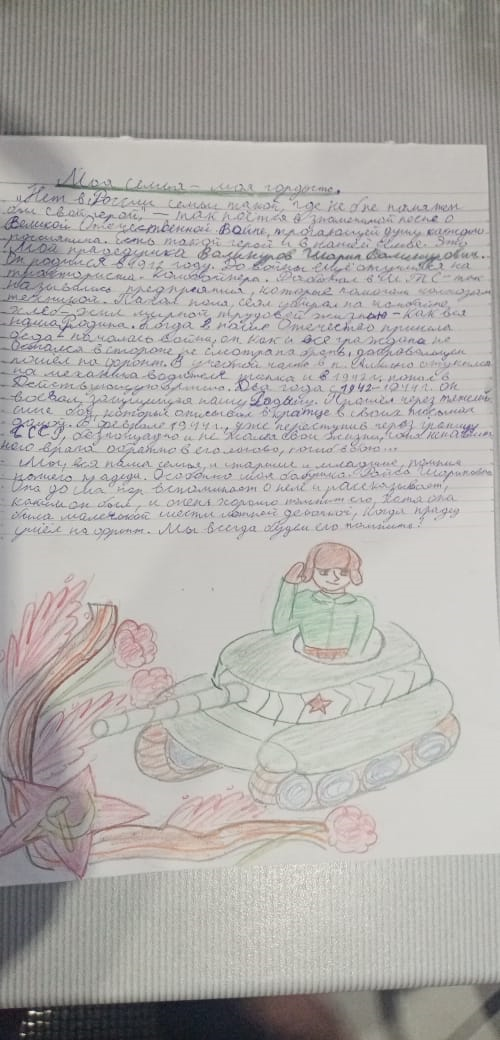 Моя семья - моя гордость.
"Нет в России семьи такой, где не был памятен
бы свой герой," - так поётся в знаменитой песне о
Великой Отечественной Войне, трогающей душу каждого
россиянина. Есть такой герой и в нашей семье. Это
мой прадедушка Шарип
Он родился в 1912 году. До войны ещё отучился на
тракториста - комбайнёра. Работал в М.Т.С - так
назывались предприятия, которые
техникой. Пахал поля, сеял, убирал на комбайне
хлеб - жил мирной трудовой жизнью - как вся
наша Родина. Когда в наше Отечество пришла
беда - началась война, он как и все граждане не
остался в стороне, не смотря на бронь, добровольцем
пошёл на фронт. В учебной части в г. отучился
на механика-водителя танка и в 1942 г. попал в
Действующую армию. Два года с 1942 - 1944 г. он
воевал, защищая нашу Родину. Прошёл через тяжелей-
шие бои, которые описывал вкратце в своих письмах
домой. В феврале 1944 г., уже переступив через границу
СССР, беспощадно и не жалея свои жизни, гоня ненавист-
ного врага обратно в его логово, погиб в бою...
Мы, вся наша семья, и старшие и младшие, помним
нашего прадеда. Особенно моя бабушка Шариповна
Она до сих пор вспоминает о нём и рассказывает,
каким он был, и очень хорошо помнит его, хотя она
была маленькой шести летней девочкой, когда прадед
ушёл на фронт. Мы всегда будем его помнить!